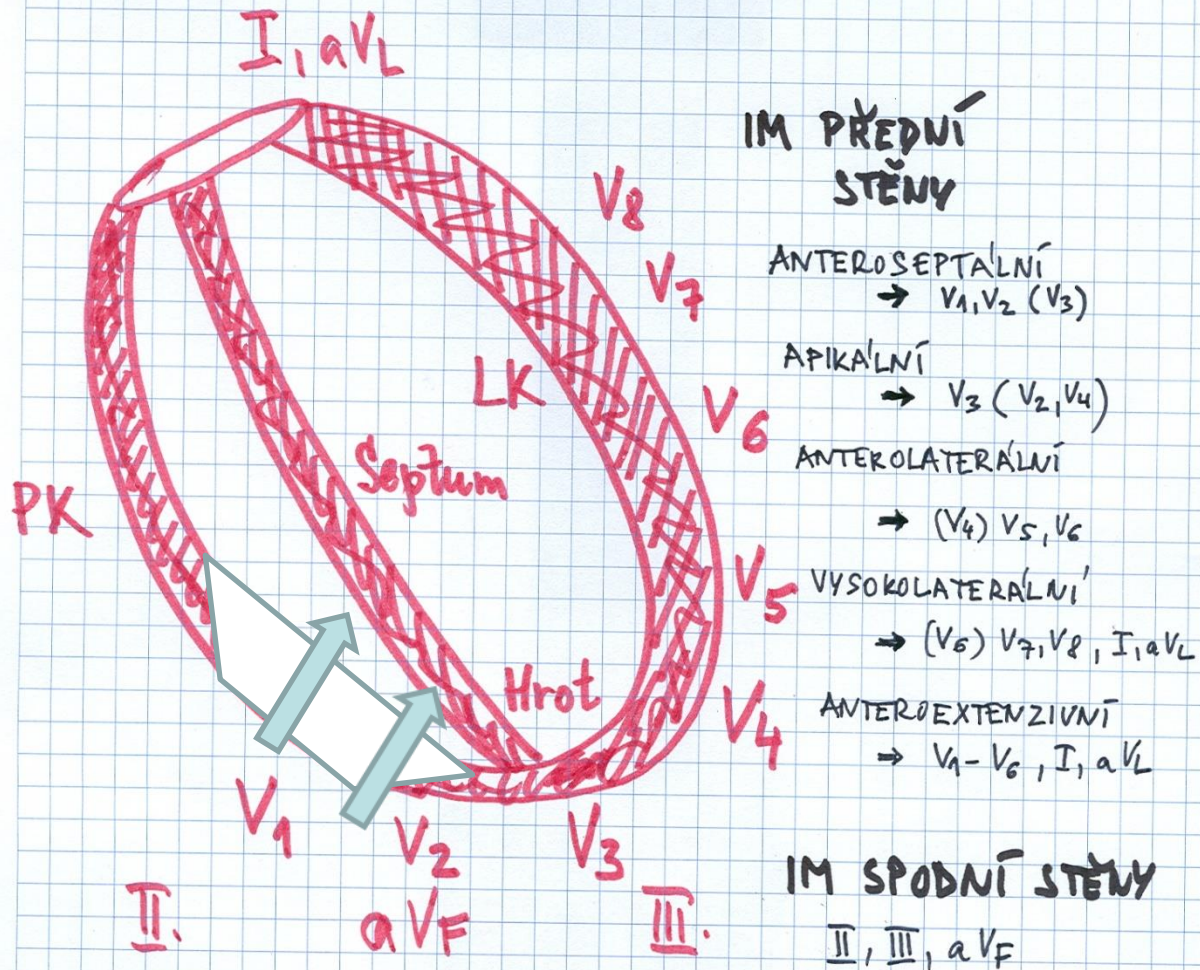 I, aVL
V8
V7
LK
V6
Septum
PK
V5
Hrot
V4
V1
V2
V3
II.
aVF
III.
IM PŘEDNÍ
STĚNY
ANTEROSEPTÁLNÍ
→ V1, V2 (V3)
APIKÁLNÍ
→ V3 (V2, V4)
ANTEROLATERÁLNÍ
→ (V4) V5, V6
VYSOKOLATERÁLNÍ
→ (V6) V7, V8, I, aVL
ANTEROEXTENZIVNÍ
→ V1 - V6, I, aVL
IM SPODNÍ STĚNY
II, III, aVF